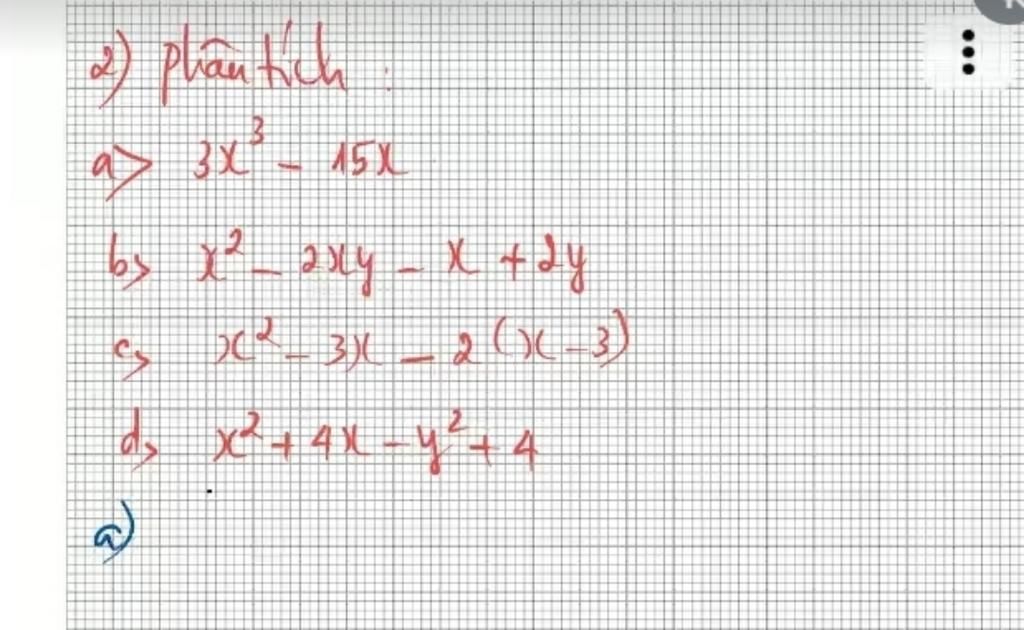 2) phân tích :
a> 3x³ - 15x
b> x² - 2xy - x + 2y
c> x² - 3x - 2(x - 3)
d> x² + 4x - y² + 4
a)